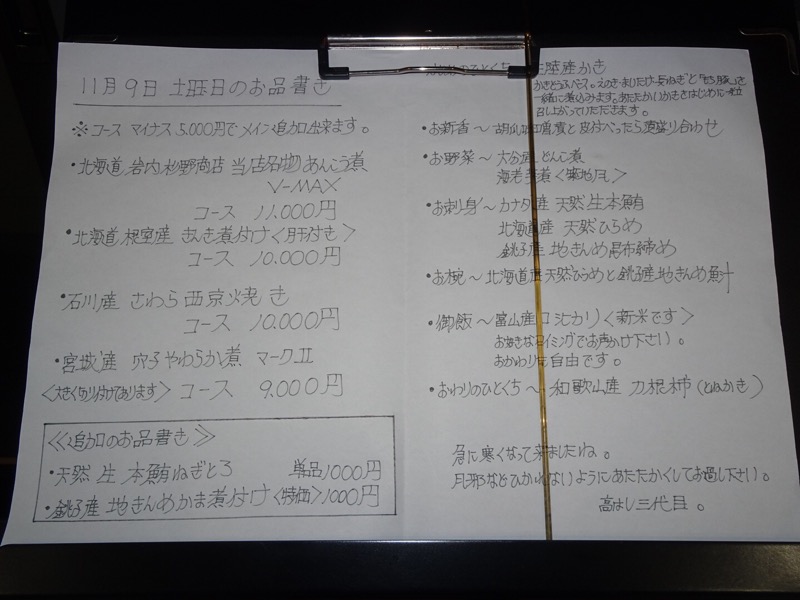 11月9日 土曜日のお品書き
※コース マイナス5.000円でメイン追加出来ます。
・北海道 岩内 杉野商店 当店名物 あんこう煮
V-MAX
コース 11.000円
・北海道 根室産 きんき煮付け〈肝付き〉
コース 10.000円
・石川産 さわら 西京焼き
コース 10.000円
・宮城産 穴子 やわらか煮 マークⅡ
〈大きく切り付けてあります〉 コース 9.000円
≪追加のお品書き≫
・天然 生 本鮪ねぎとろ 単品1000円
・銚子産 地きんめかま煮付け〈特価〉1000円
のひとくち 三陸産かき
かきとうふベース。えのき・まいたけ・長ねぎと
一緒に煮込みます。あたたかいかきをはじめに
召し上がっていただきます。
・お新香～ 胡瓜 と 皮付べったら漬盛り合わせ
・お野菜～ 大分産 どんこ煮
海老芋煮〈築地風〉
・お刺身～ カナダ産 天然生本鮪
北海道産 天然ひらめ
銚子産 地きんめ昆布締め
・お椀～北海道産天然ひらめと銚子産地きんめ魚汁
・御飯～富山産コシヒカリ〈新米です〉
お好きなタイミングでお声かけ下さい。
おかわりも自由です。
・おわりのひとくち～ 和歌山産 刀根柿（とねかき）
急に寒くなって来ましたね。
風邪などひかれないようにあたたかくしてお過し下さい。
高はし三代目。